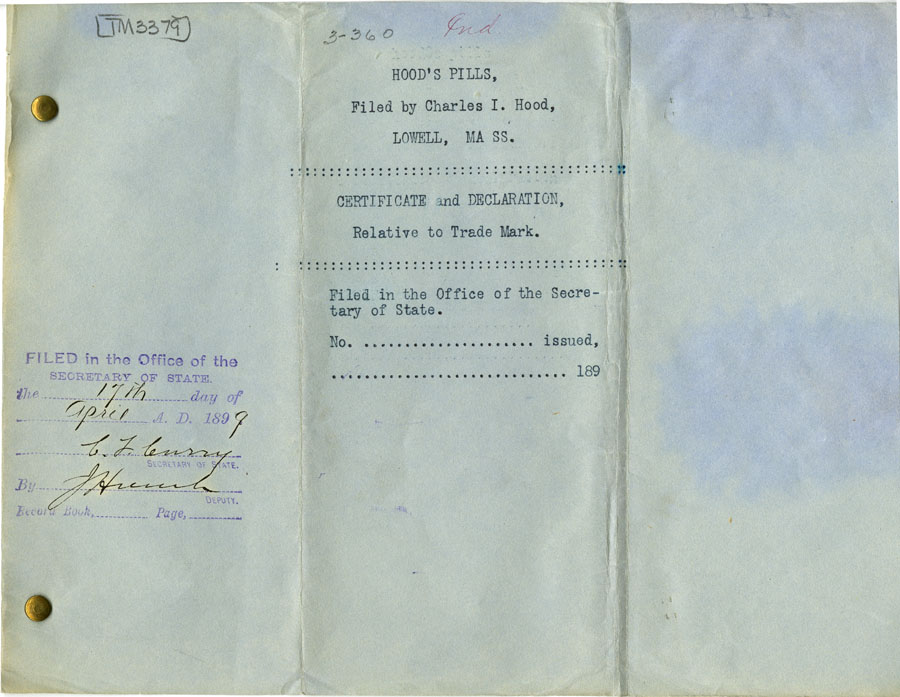 TM3379
3-360
Ind
HOOD'S PILLS,
Filed by Charles I. Hood,
LOWELL, MA SS.
CERTIFICATE and DECLARATION,
Relative to Trade Mark.
Filed in the Office of the Secre-
tary of State.
No. ..................... issued,
............................. 189
FILED in the Office of the
SECRETARY OF STATE.
the 17th day of
April A. D. 1899
C. F. Curry
SECRETARY OF STATE.
By
DEPUTY.
Record Book, Page,